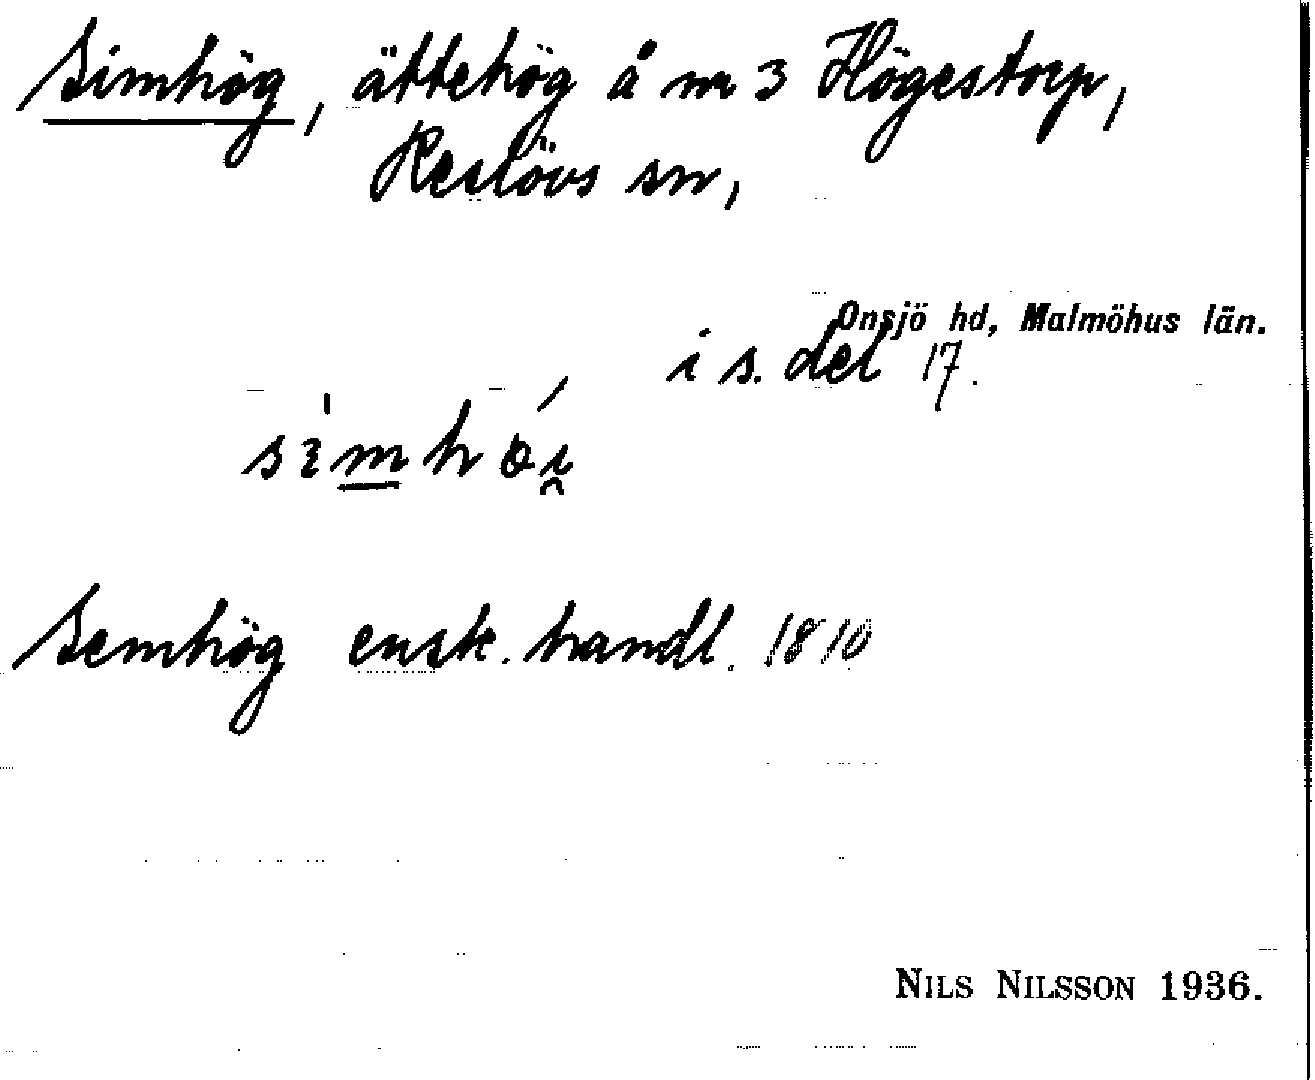 Simhög, ättehög å nr 3 Högestorp,
Reslövs sn,
Onsjö hd, Malmöhus län.
i s. del 17.
Semhög ensk. handl. 1810
NILS NILSSON 1936.